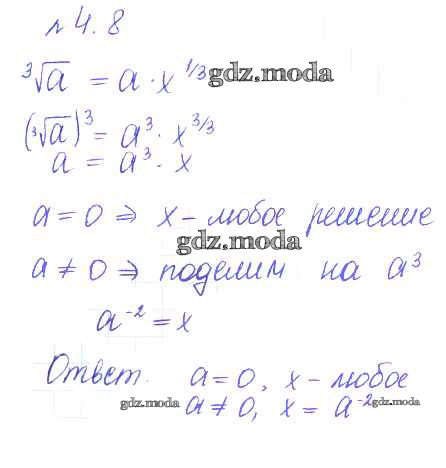 № 4.8
∛a = a · x^{1/3} gdz.moda
(∛a)³ = a³ · x^{3/3}
a = a³ · x
a = 0 ⇒ x – любое решение
gdz.moda
a ≠ 0 ⇒ поделим на a³
a⁻² = x
Ответ. a = 0, x – любое
gdz.moda a ≠ 0, x = a⁻² gdz.moda